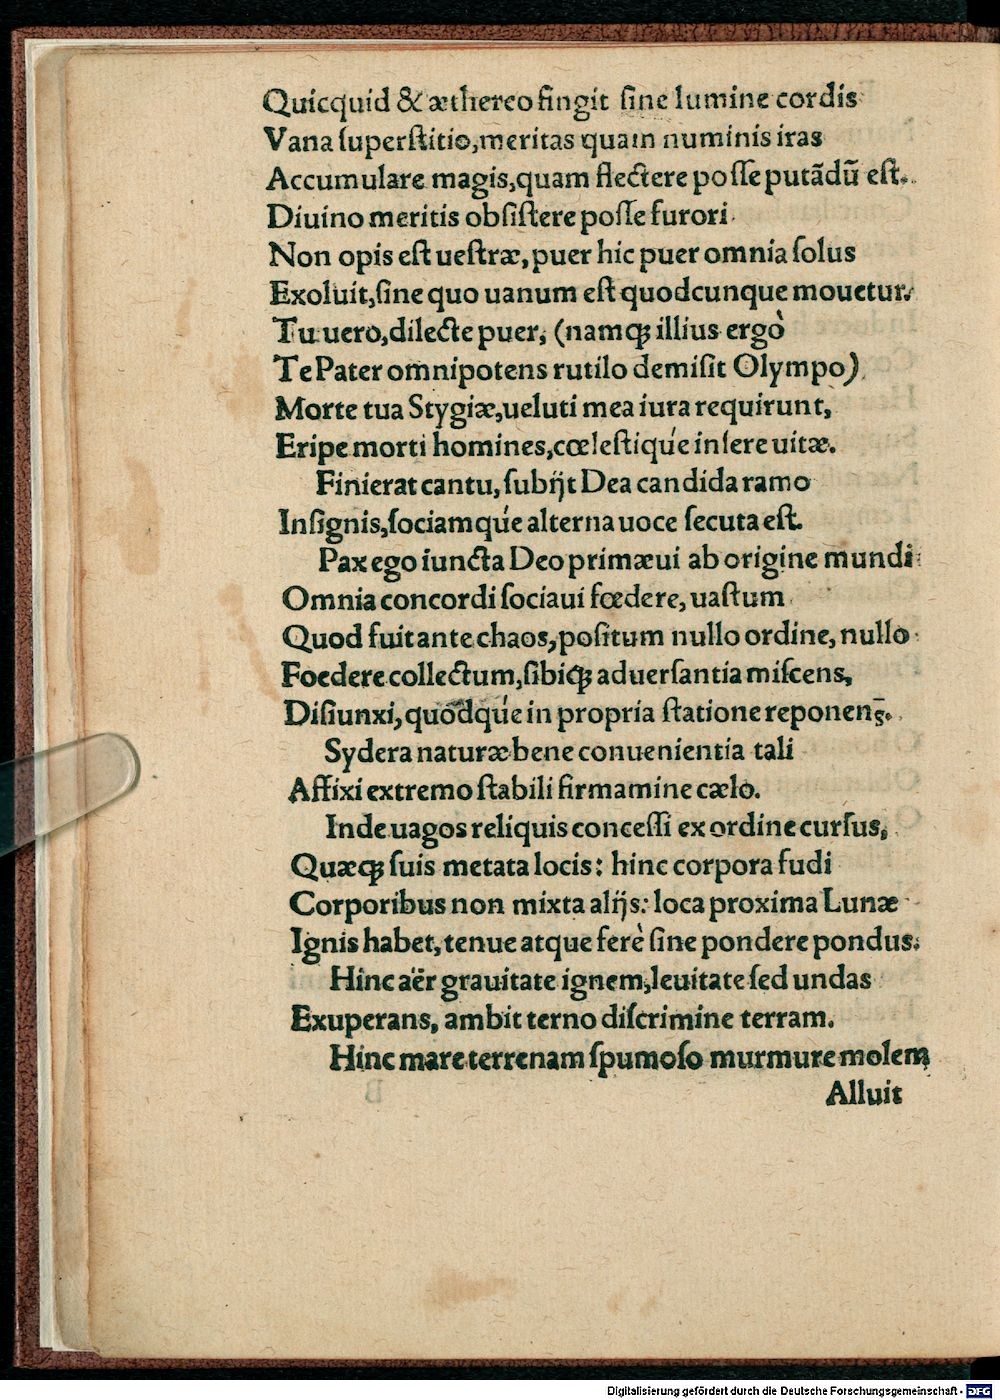 Quicquid & æthereo fingit ſine lumine cordis
Vana ſuperſtitio,meritas quam numinis iras
Accumulare magis,quam flectere poſſe putādū eſt.
Diuino meritis obſiſtere poſſe furori
Non opis eſt ueſtræ, puer hic puer omnia ſolus
Exoluit,ſine quo uanum eſt quodcunque mouetur.
Tu uero,dilecte puer, (namqꝫ illius ergò
Te Pater omnipotens rutilo demiſit Olympo)
Morte tua Stygiæ,ueluti mea iura requirunt,
Eripe morti homines,cœleſtiqúe inſere uitæ.
Finierat cantu, ſubijt Dea candida ramo
Inſignis,ſociamqúe alterna uoce ſecuta eſt.
Pax ego iuncta Deo primæui ab origine mundi
Omnia concordi ſociaui fœdere, uaſtum
Quod fuit ante chaos,poſitum nullo ordine, nullo
Foedere collectum,ſibiqꝫ aduerſantia miſcens,
Diſiunxi, quōdqúe in propria ſtatione reponens̄.
Sydera naturæ bene conuenientia tali
Affixi extremo ſtabili firmamine cælo.
Inde uagos reliquis conceſſi ex ordine curſus,
Quæqꝫ ſuis metata locis: hinc corpora fudi
Corporibus non mixta alijs: loca proxima Lunæ
Ignis habet, tenue atque ferè ſine pondere pondus.
Hinc aër grauitate ignem,leuitate ſed undas
Exuperans, ambit terno diſcrimine terram.
Hinc mare terrenam ſpumoſo murmure molem
Alluit
Digitalisierung gefördert durch die Deutsche Forschungsgemeinschaft - DFG